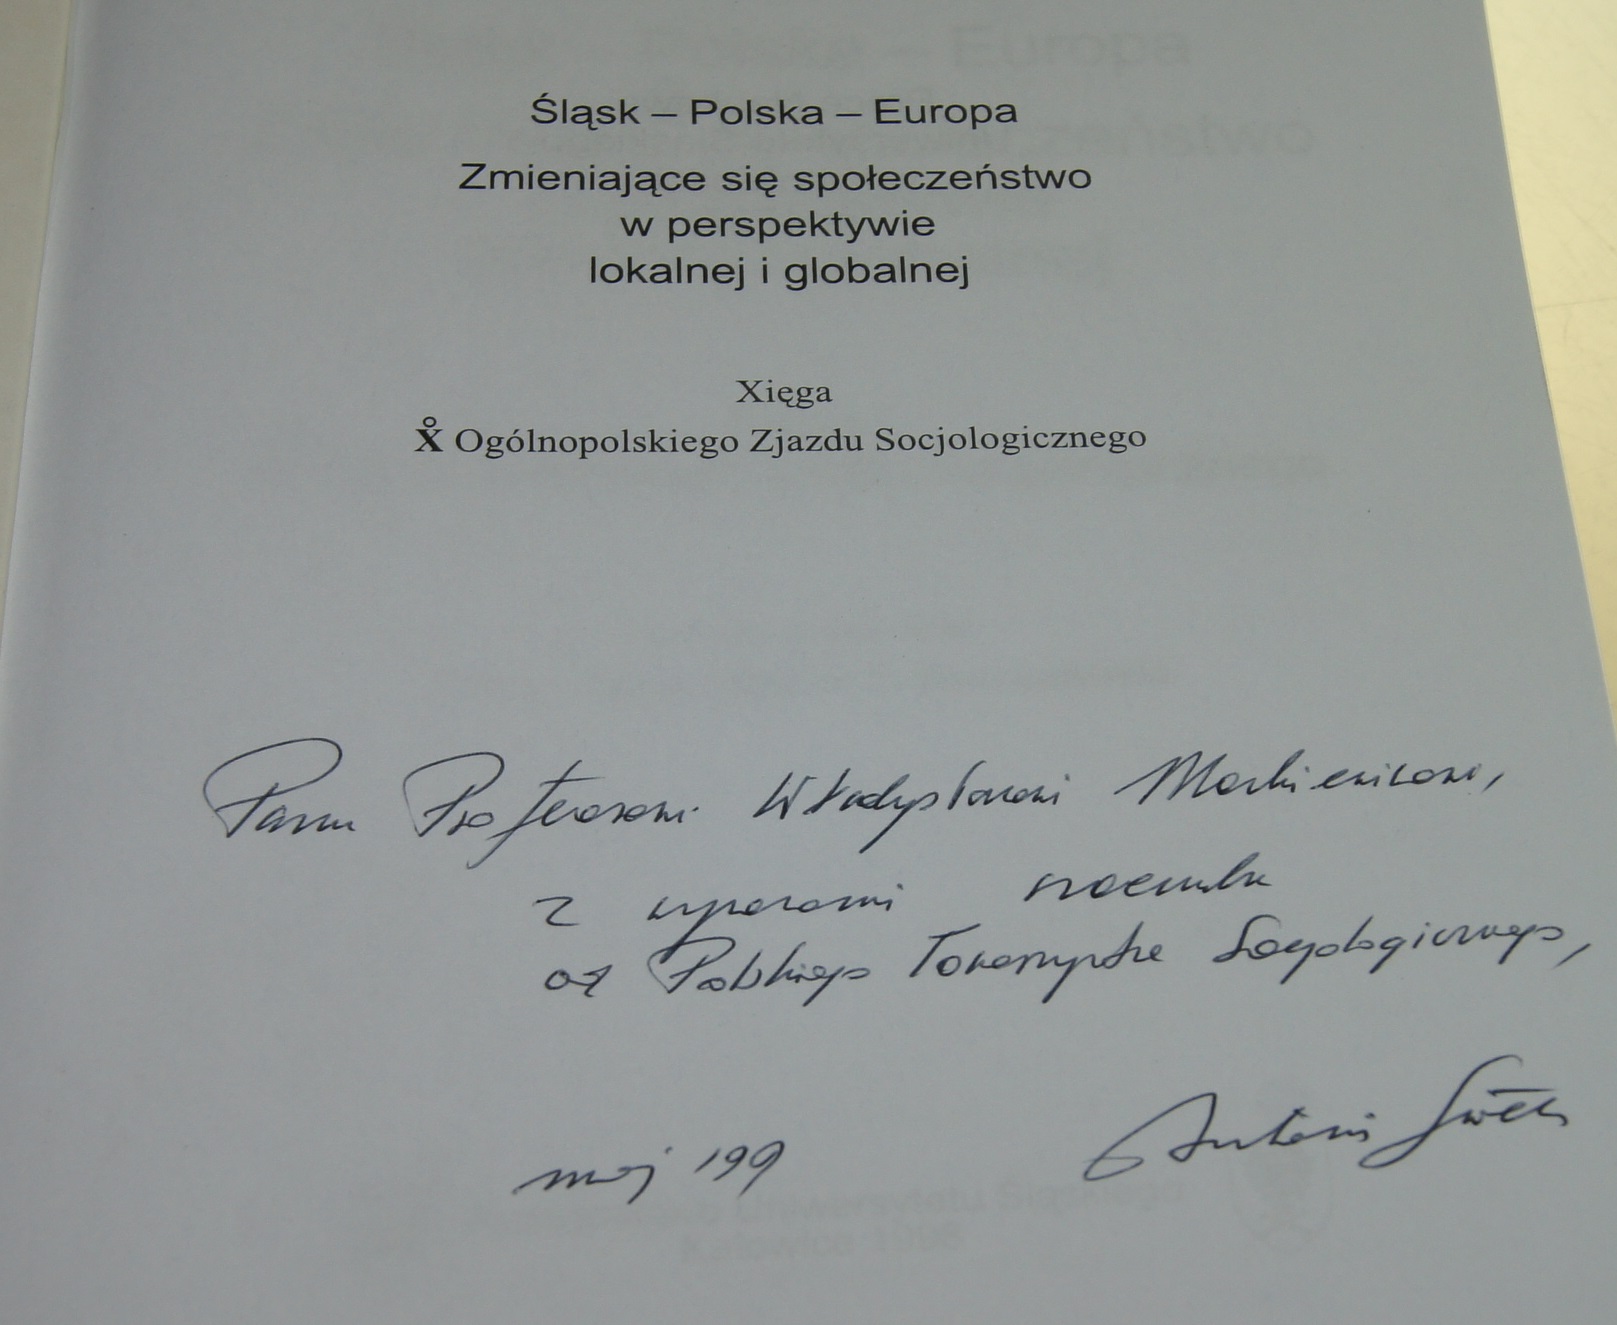 Śląsk – Polska – Europa
Zmieniające się społeczeństwo
w perspektywie
lokalnej i globalnej
Xięga
X̊ Ogólnopolskiego Zjazdu Socjologicznego
Panu Profesorowi Władysławowi Markiewiczowi,
z wyrazami szacunku
od Polskiego Towarzystwa Socjologicznego,
Antoni Sułek
maj 199
Uniwersytetu Śląskiego
Katowice 1998